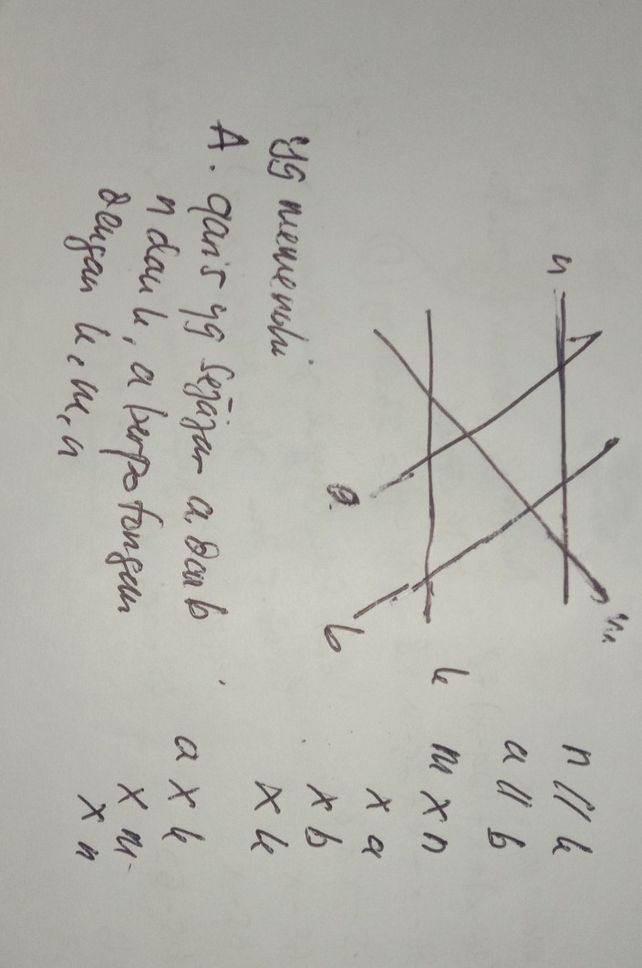 n
m
a
b
k
n // k
a // b
m x n
x a
x b
x k
a x k
x m
x n
yg memenuhi
A. garis yg sejajar a dan b
n dan k, a berpotongan
dengan k, m, n